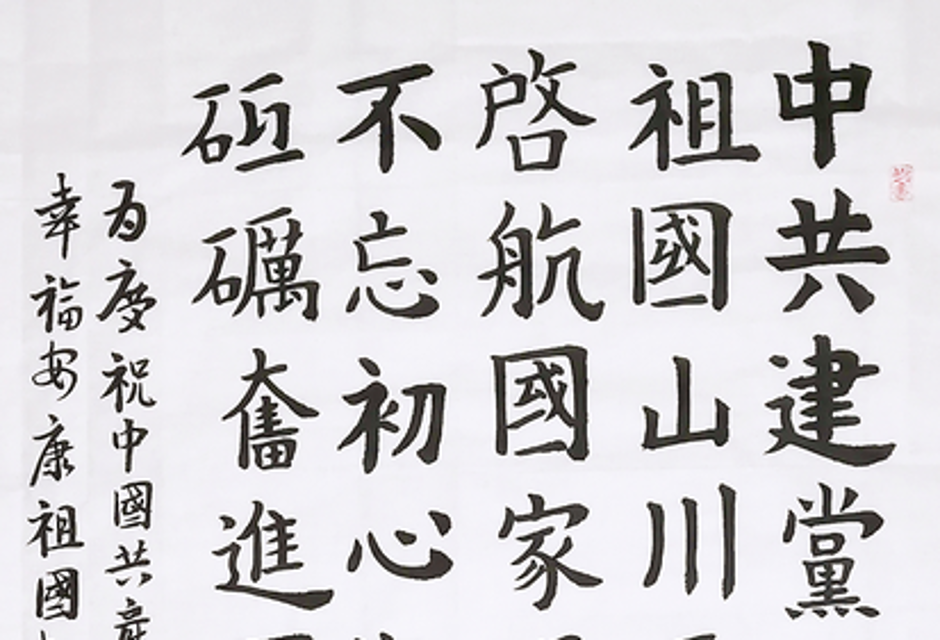 中共建黨
祖國山川
啓航國家
不忘初心
砥礪奮進
为慶祝中國共產
幸福安康祖國